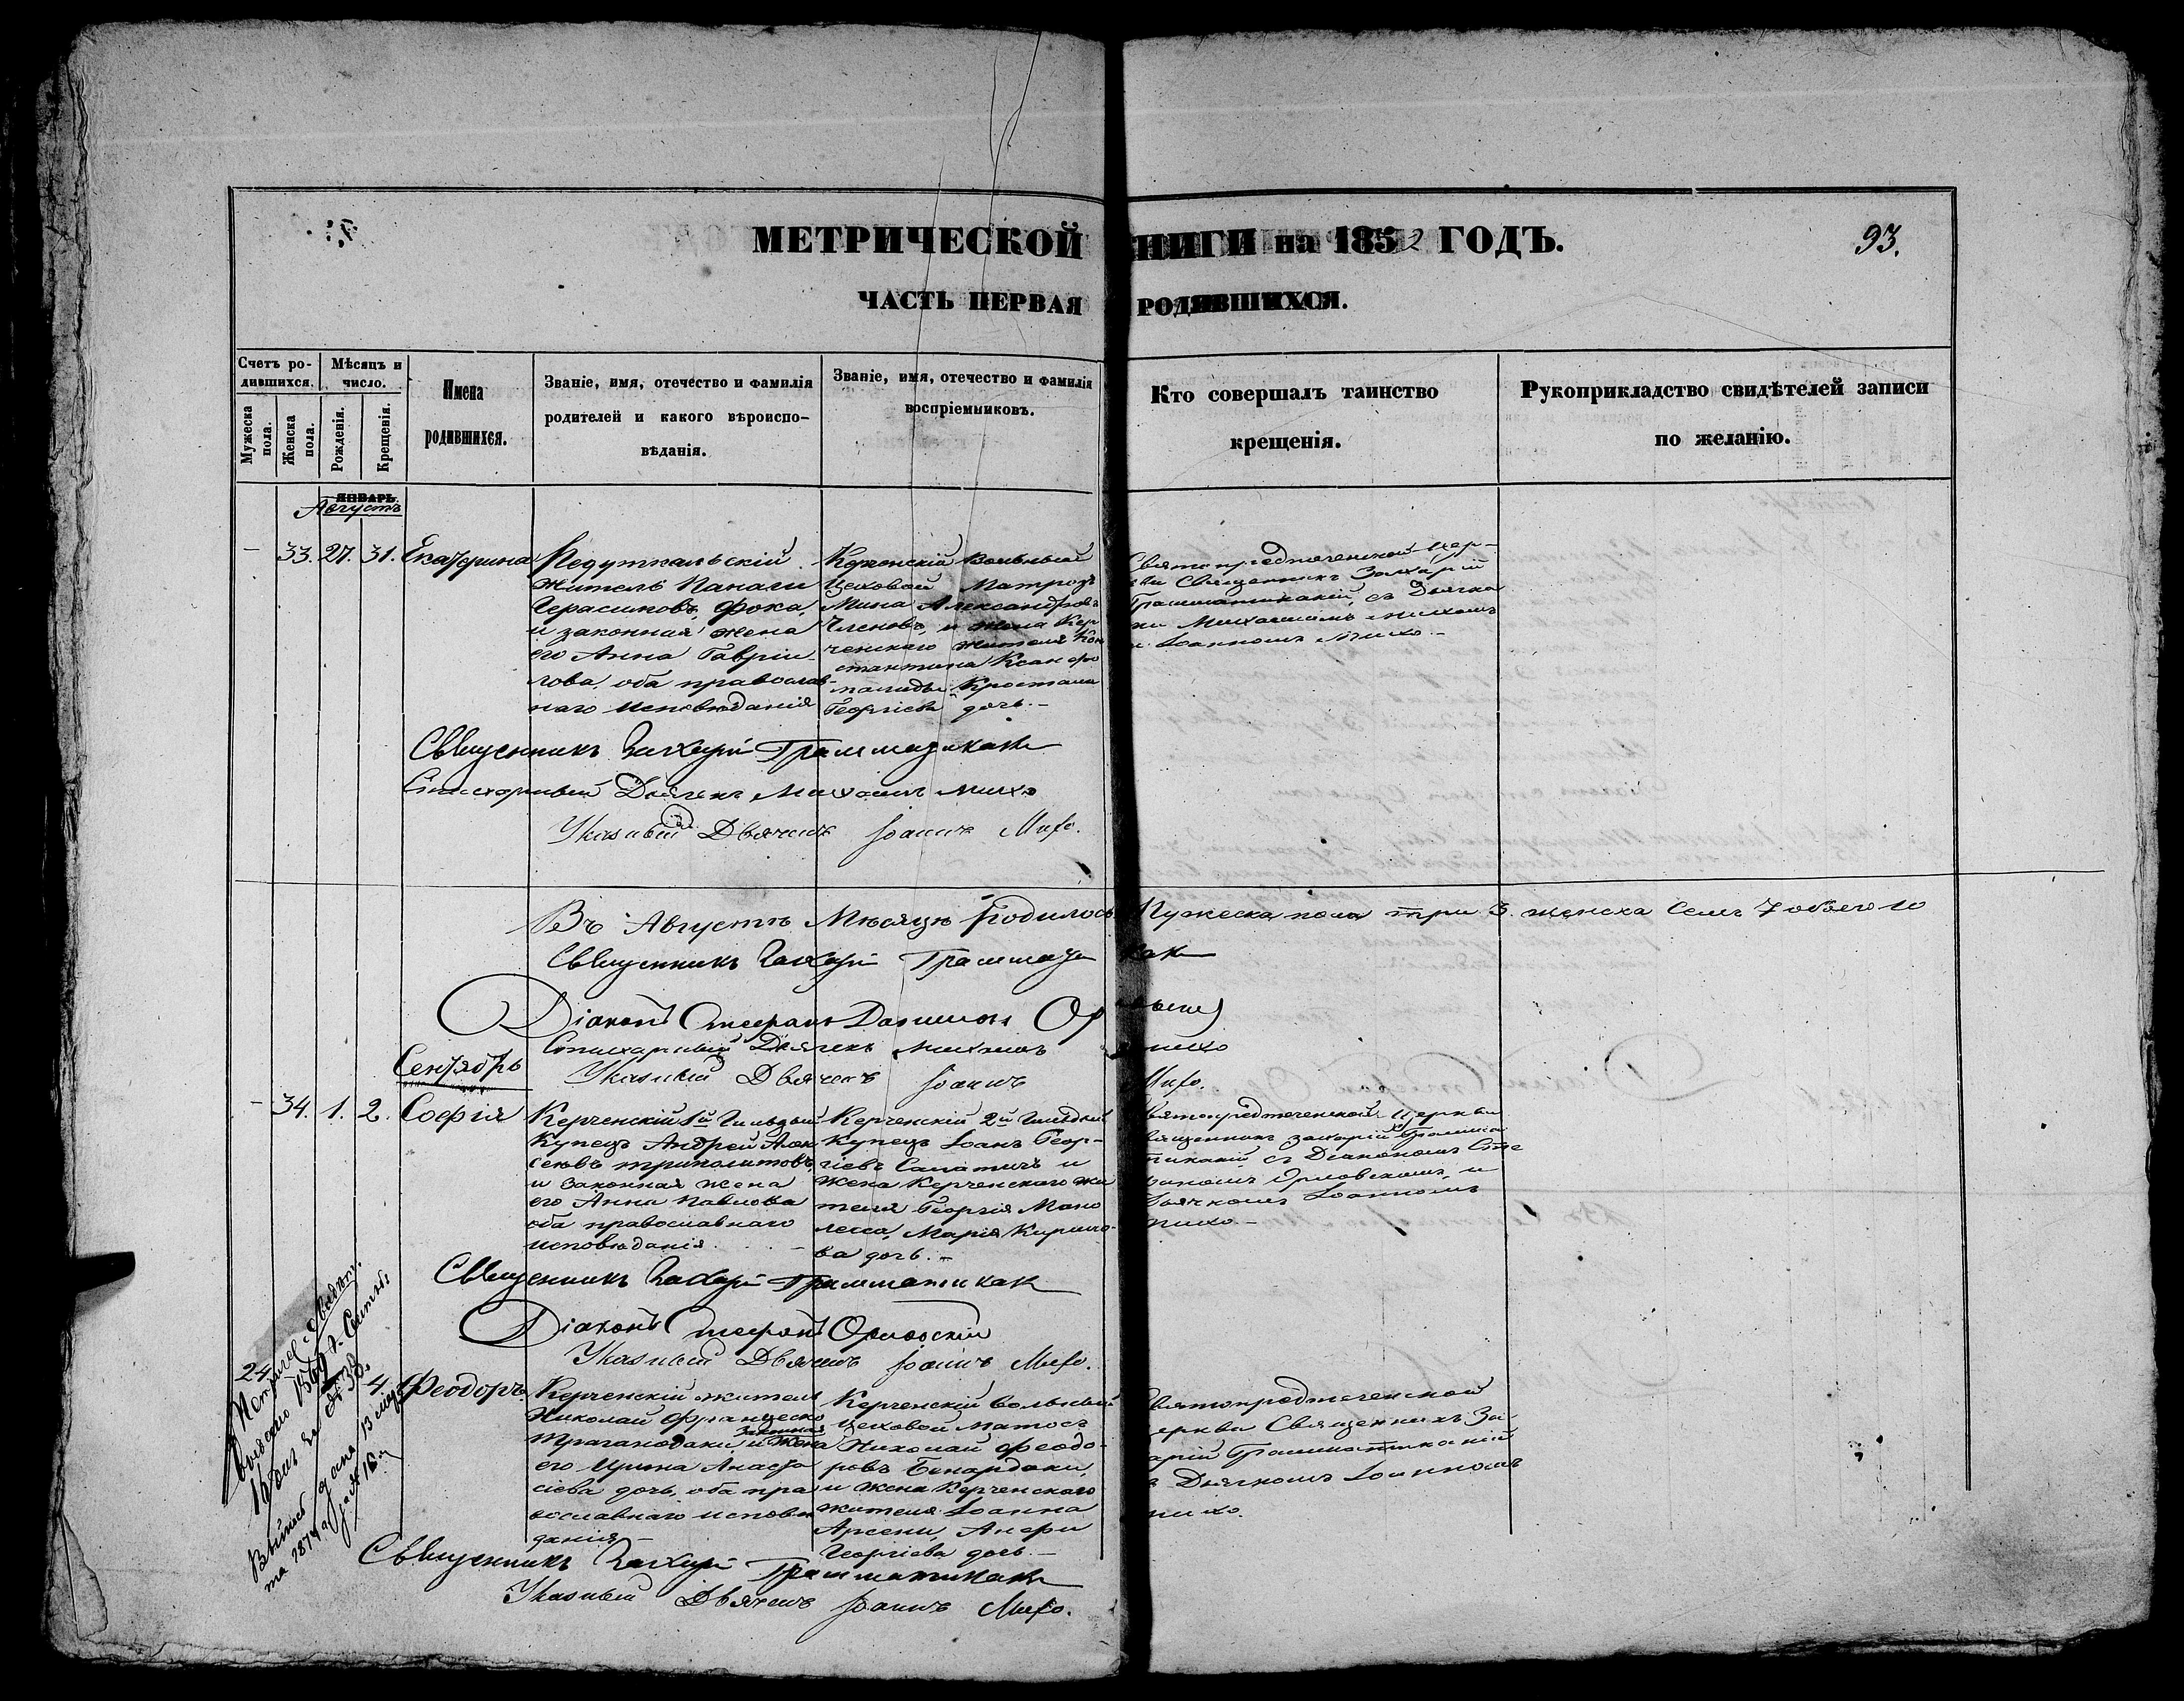 МЕТРИЧЕСКОЙ КНИГИ на 1852 ГОДЪ.
93.
ЧАСТЬ ПЕРВАЯ РОДИВШИХСЯ.
Счетъ ро-
дившихся.
Мужеска пола.
Женска пола.
Мѣсяцъ и
число.
Рожденія.
Крещенія.
Имена
родившихся.
Званіе, имя, отечество и фамилія
родителей и какого вѣроиспо-
вѣданія.
Званіе, имя, отечество и фамилія
воспріемниковъ.
Кто совершалъ таинство
крещенія.
Рукоприкладство свидѣтелей записи
по желанію.
ЯНВАРЬ
Августъ
- 33. 27. 31. Екатерина
Редуткальскій
житель Панаги
Герасимовъ Фока,
и законная жена
его Анна Гавріи-
лова, оба православ-
наго исповѣданія
Керченскій Вольный
Цеховой Матрозъ
Мина Александровъ
Членовъ, и жена Кер
ченскаго жителя Кон
стантина Ксанфо
Георгіева дочь.-
Святопредтеченской Цер-
кви Священникъ Захарій
Грамматикакій, съ Дьячка
ми Михаиломъ Михомъ
и Іоанномъ Михо.-
Священникъ Захарій Грамматикаки
Стихарный Дьячекъ Михаилъ Михо
Указный Дьячекъ Іоаннъ Михо.
Въ Августѣ Мѣсяцѣ Родилось Мужеска пола три 3. женска Семъ 7 обоего 10
Священникъ Захарій Грамматикаки
Діаконъ Стефанъ Ор
Стихарный Дьячекъ Михаилъ Михо
Указный Дьячекъ Іоаннъ Михо.
Сентябрь
- 34. 1. 2. Софія
Керченскій 1й Гильдіи
Купецъ Андрей Алек
сеевъ Триполитовъ,
и законная жена
его Анна Павлова
оба православнаго
исповѣданія. -
Керченскій 2й Гильдіи
Купецъ Іоанъ Геор-
гіевъ Сапатичъ и
жена Керченскаго жи
теля Георгія Мано
лесса, Марія Кирило-
ва дочь.-
Святопредтеченской Церкви
Священникъ Захарій Грамма
тикакій съ Діакономъ Сте
фаномъ Орловскимъ, и
Дьячкомъ Іоанномъ
Михо.-
Священникъ Захарій Грамматикаки
Діаконъ Стефанъ Орловскій
Указный Дьячекъ Іоаннъ Михо.
24 4. Феодоръ
Керченскій житель
Николай Франческо
Траганодаки, и законная жена
его Ирина Анаста
сіева дочь, оба пра
вославнаго исповѣ
данія-
Керченскій вольный
цеховой матосъ
Николай Феодо-
ровъ Бенардаки,
и жена Керченскаго
жителя Іоанна
Арсени, Анефи
Георгіева дочь.-
Святопредтеченской
Церкви Священникъ За-
харій Грамматикакій
съ Дьячкомъ Іоанномъ
Михо.
Священникъ Захарій Грамматикаки
Указный Дьячекъ Іоаннъ Михо.